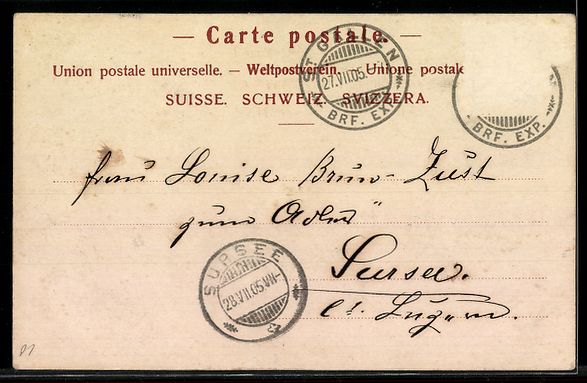 — Carte postale. —
Union postale universelle. — Weltpostverein. — Unione postale
SUISSE. SCHWEIZ. SVIZZERA.
ST. GALLEN
27.VII.05.
BRF. EXP.
BRF. EXP.
Frau Louise Brun-Zust
zum Adler"
Sursee.
Ct. Luzern.
SURSEE
28.VII.05.VII-